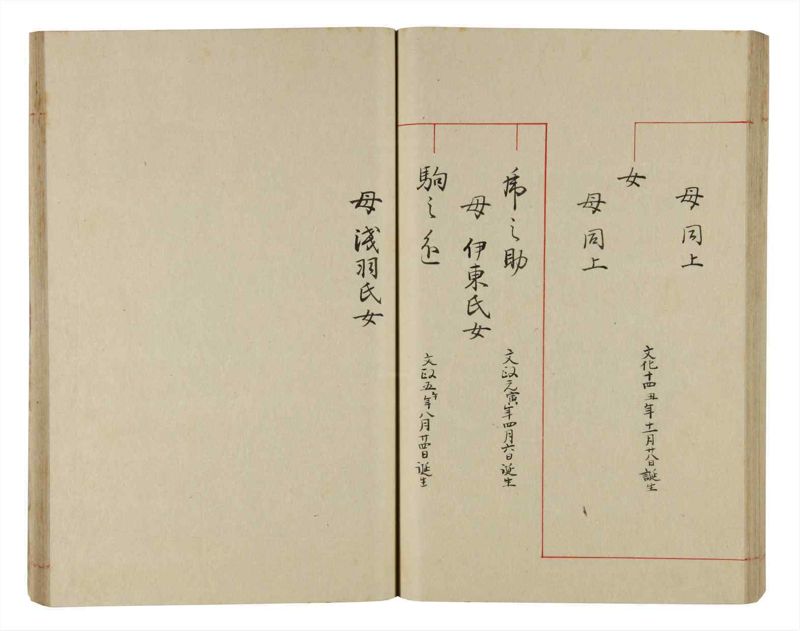 母同上
女
文化十四丑年十一月廿八日誕生
母同上
乕之助
文政元寅年四月六日誕生
母 伊東氏女
駒之進
文政五午年八月廿四日誕生
母 淺羽氏女